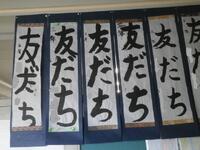 友だち
友だち
友だち
友だち
友だち
友